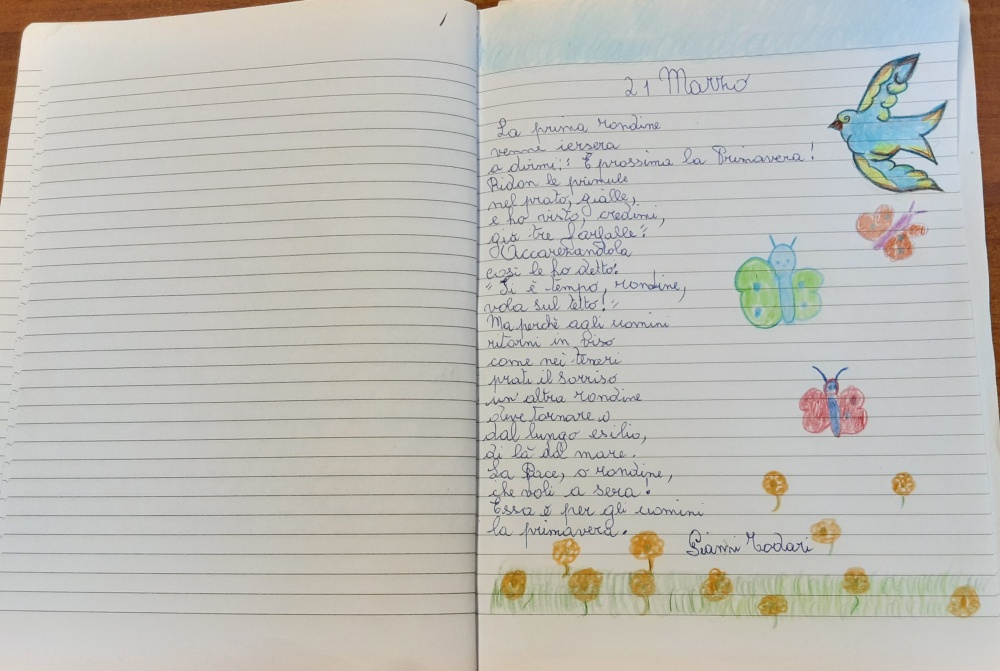 21 Marzo
La prima rondine
venne iersera
a dirmi: " È prossima la Primavera!
Ridon le primule
nel prato, gialle,
e ho visto, credimi,
già tre farfalle".
Accarezzandola
così le ho detto:
"Sì è tempo, rondine,
vola sul tetto!"
Ma perchè agli uomini
ritorni in viso
come nei teneri
prati il sorriso
un'altra rondine
deve tornare
dal lungo esilio,
di là dal mare.
La Pace, o rondine,
che voli a sera!
Essa è per gli uomini
la primavera.
Gianni Rodari